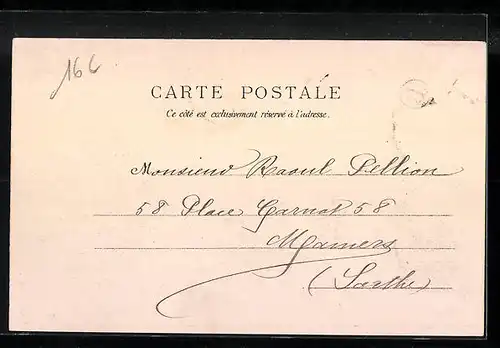 16 C
CARTE POSTALE
Ce côté est exclusivement réservé à l'adresse.
Monsieur Raoul Pellion
58 Place Carnot 58
Mamers
(Sarthe)